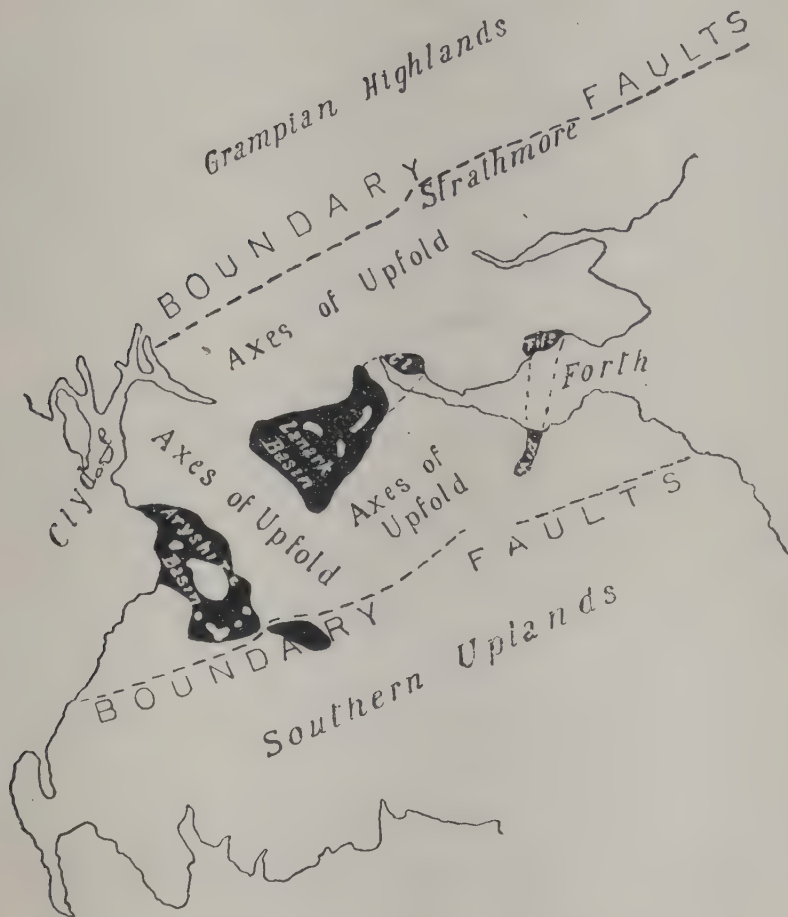 Grampian Highlands
BOUNDARY FAULTS
Strathmore
Axes of Upfold
Fife
Forth
Lanark
Basin
Clyde
Axes of Upfold
Axes of
Upfold
Aryshire
Basin
BOUNDARY FAULTS
Southern Uplands